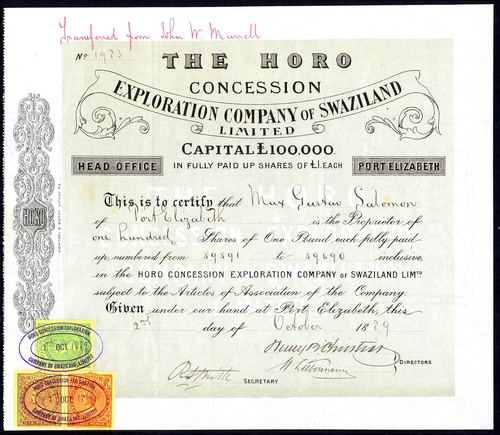 Transferred from John W. Murrell
No 1983
THE HORO
CONCESSION
EXPLORATION COMPANY OF SWAZILAND
LIMITED
CAPITAL £100,000.
IN FULLY PAID UP SHARES OF £1. EACH
HEAD OFFICE
PORT ELIZABETH
This is to certify that Max Gustav Salomon
of Port Elizabeth is the Proprietor of
one hundred Shares of One Pound each fully paid
up, numbered from 59591 to 59690 inclusive,
in the HORO CONCESSION EXPLORATION COMPANY OF SWAZILAND LIMTD
subject to the Articles of Association of the Company.
Given under our hand at Port Elizabeth, this
2nd day of October 1889
DIRECTORS
SECRETARY
HORO
HORO CONCESSION EXPLORATION
OCT 1889
COMPANY OF SWAZILAND, LIMITED
HORO CONCESSION EXPLORATION
OCT
COMPANY OF SWAZILAND, LIMITED